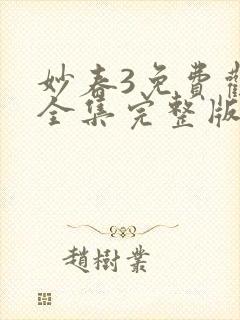 妙春3免費觀
全集完整版
趙樹業